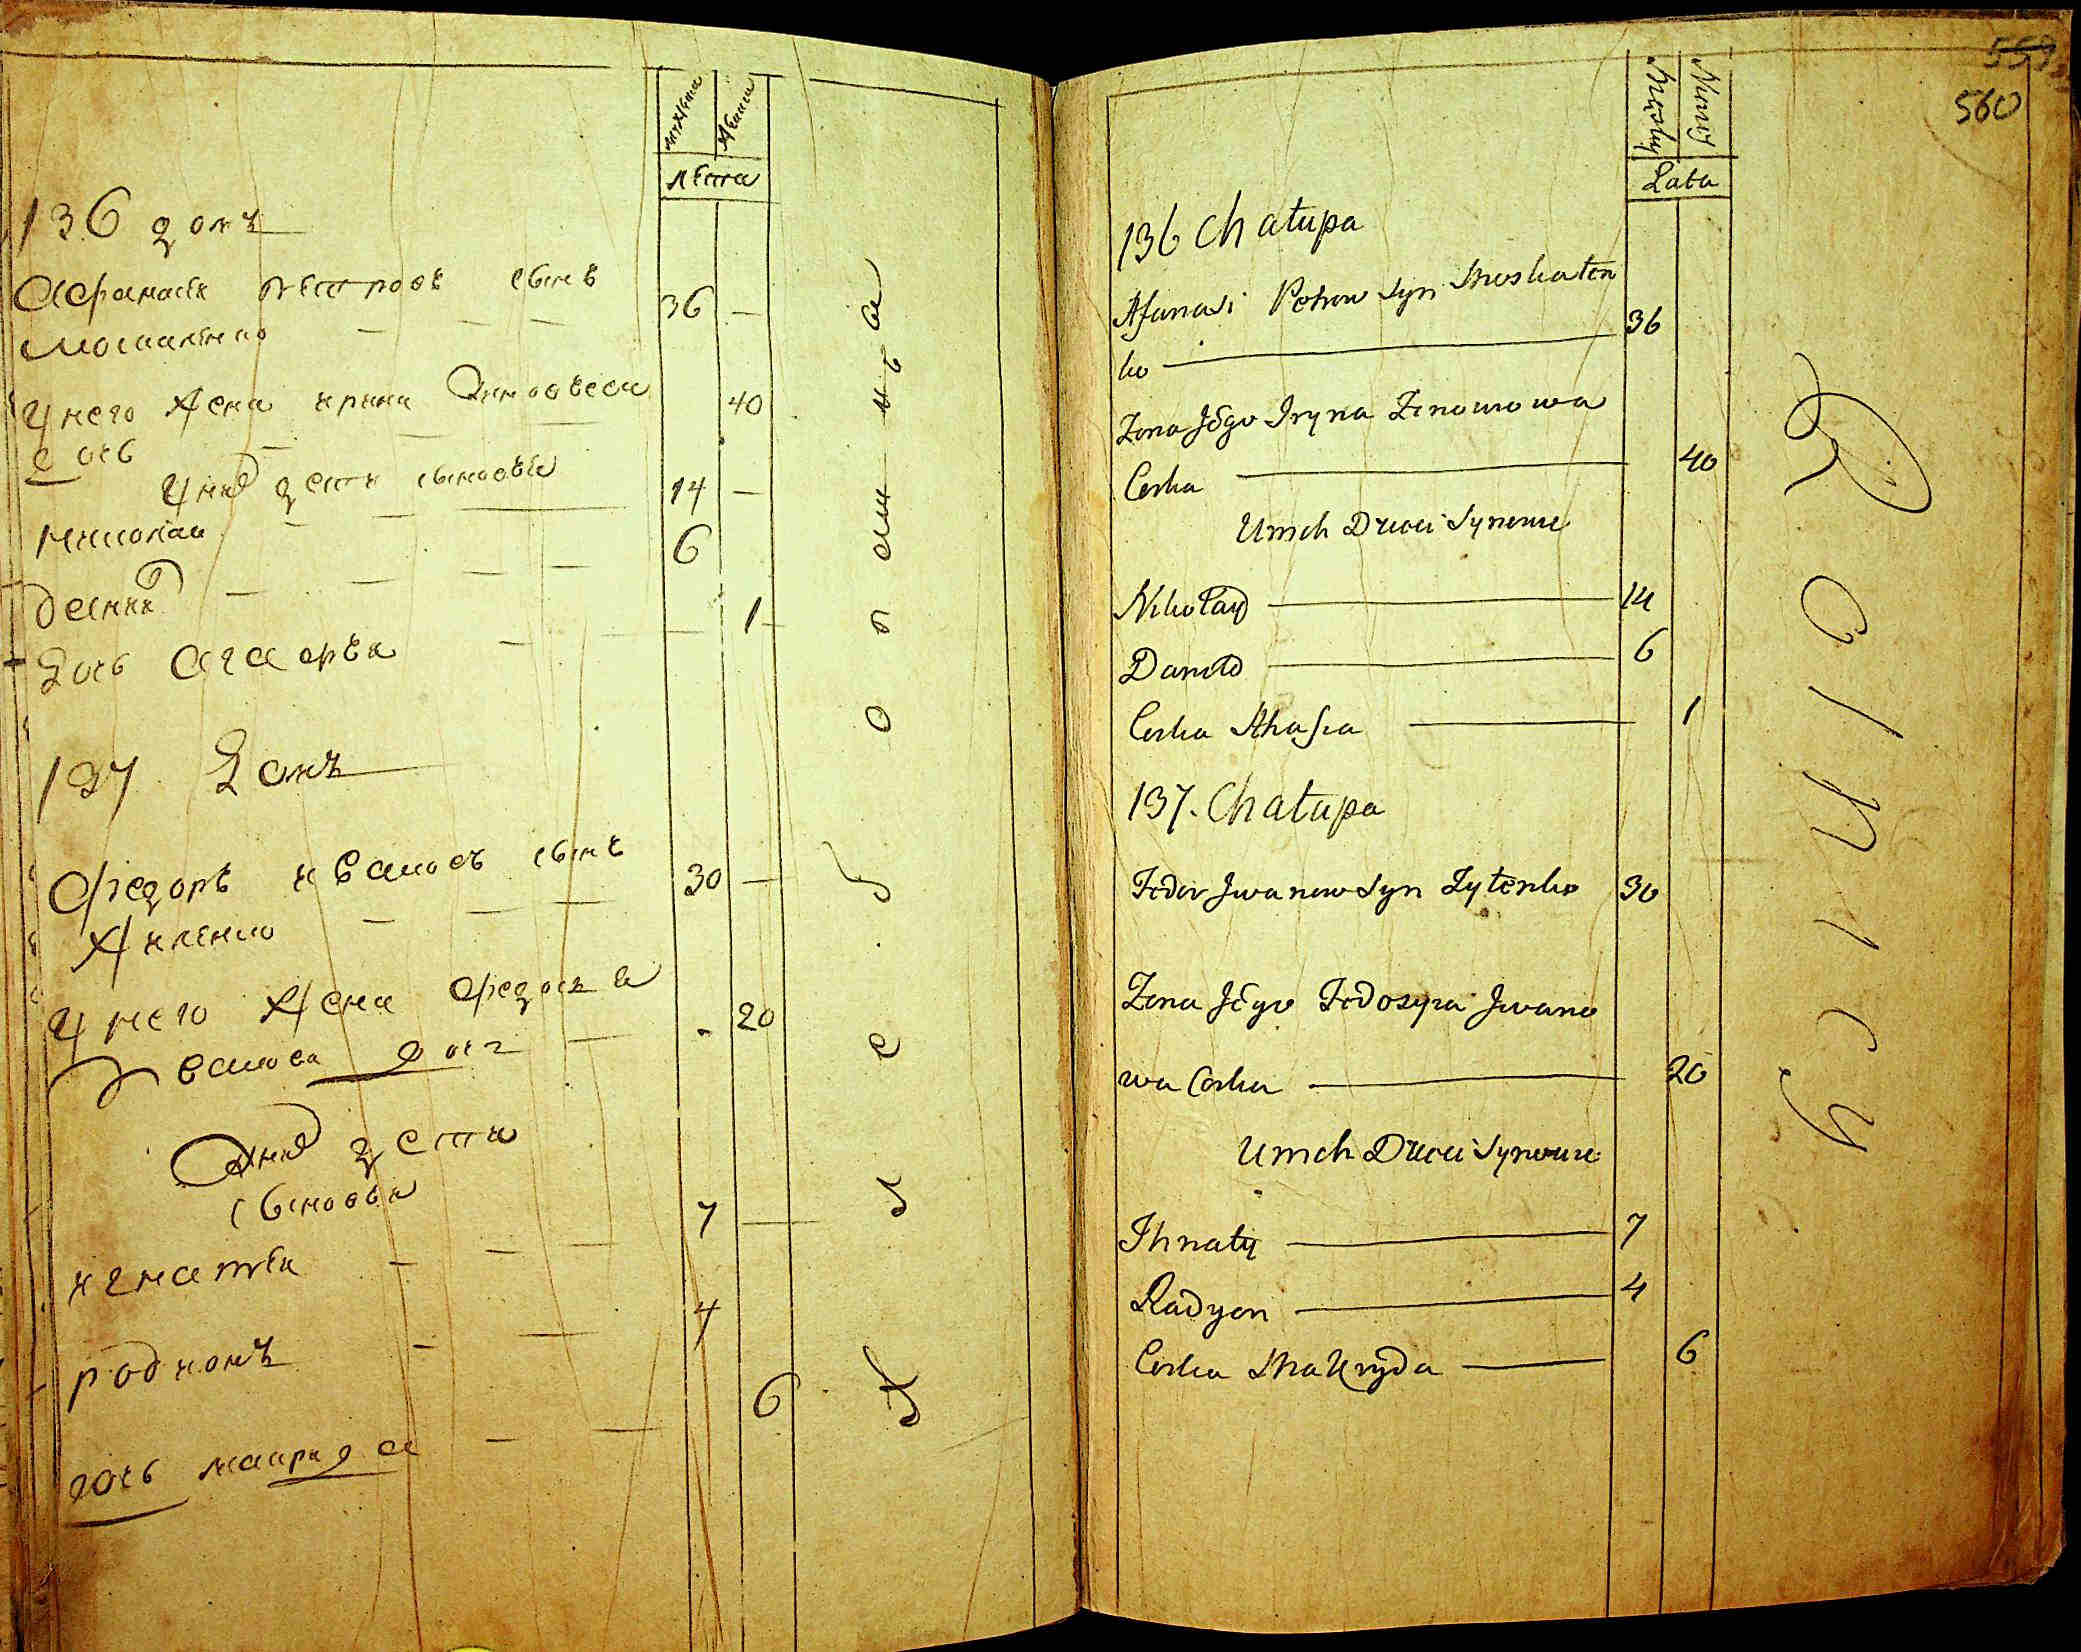 мужеска
женска
лѣта
136 домъ
Афанасіи Петровъ сынъ
Москаленко
36
У него жена Ирина Зиновьева
дочь
40
У нихъ дети сыновья
Николаи
14
Данило
6
Дочь Агафья
1
137 Домъ
Фіодоръ Ивановъ сынъ
30
Жиленко
У него жена Федосия
Иванова дочь
20
У нихъ дети
сыновья
Игнатіи
7
Родионъ
4
дочь макрида
6
560
Męskiey
Żeńskiey
Lata
136 Chałupa
Afanasi Petrow Syn Moskalen
ko
36
Zona Jego Iryna Zinowiowa
Corka
40
Unich Dzieci Synowie
Nikołay
14
Daniło
6
Corka Ahafia
1
137. Chałupa
Fedor Jwanow Syn Zylenko 30
Zona Jego Fedosyia Jwano
wa Corka
20
Unich Dzieci Synowie
Ihnaty
7
Radyon
4
Corka Makryda
6
Rolnicy